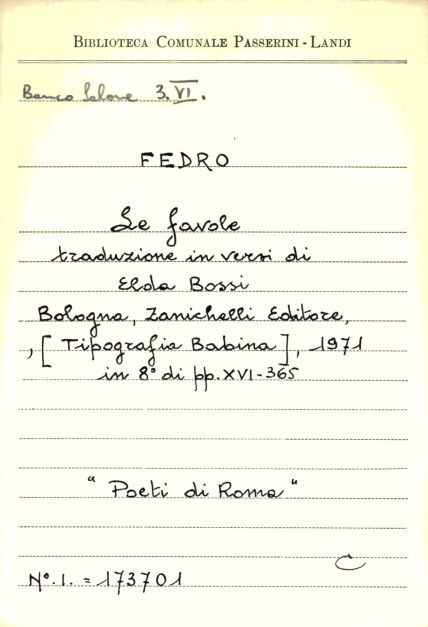 BIBLIOTECA COMUNALE PASSERINI - LANDI
Banco Salone 3.VI.
FEDRO
Le favole
traduzione in versi di
Elda Bossi
Bologna, Zanichelli Editore,
, [Tipografia Babina], 1971
in 8° di pp. XVI-365
"Poeti di Roma"
C
N°. I. = 173701